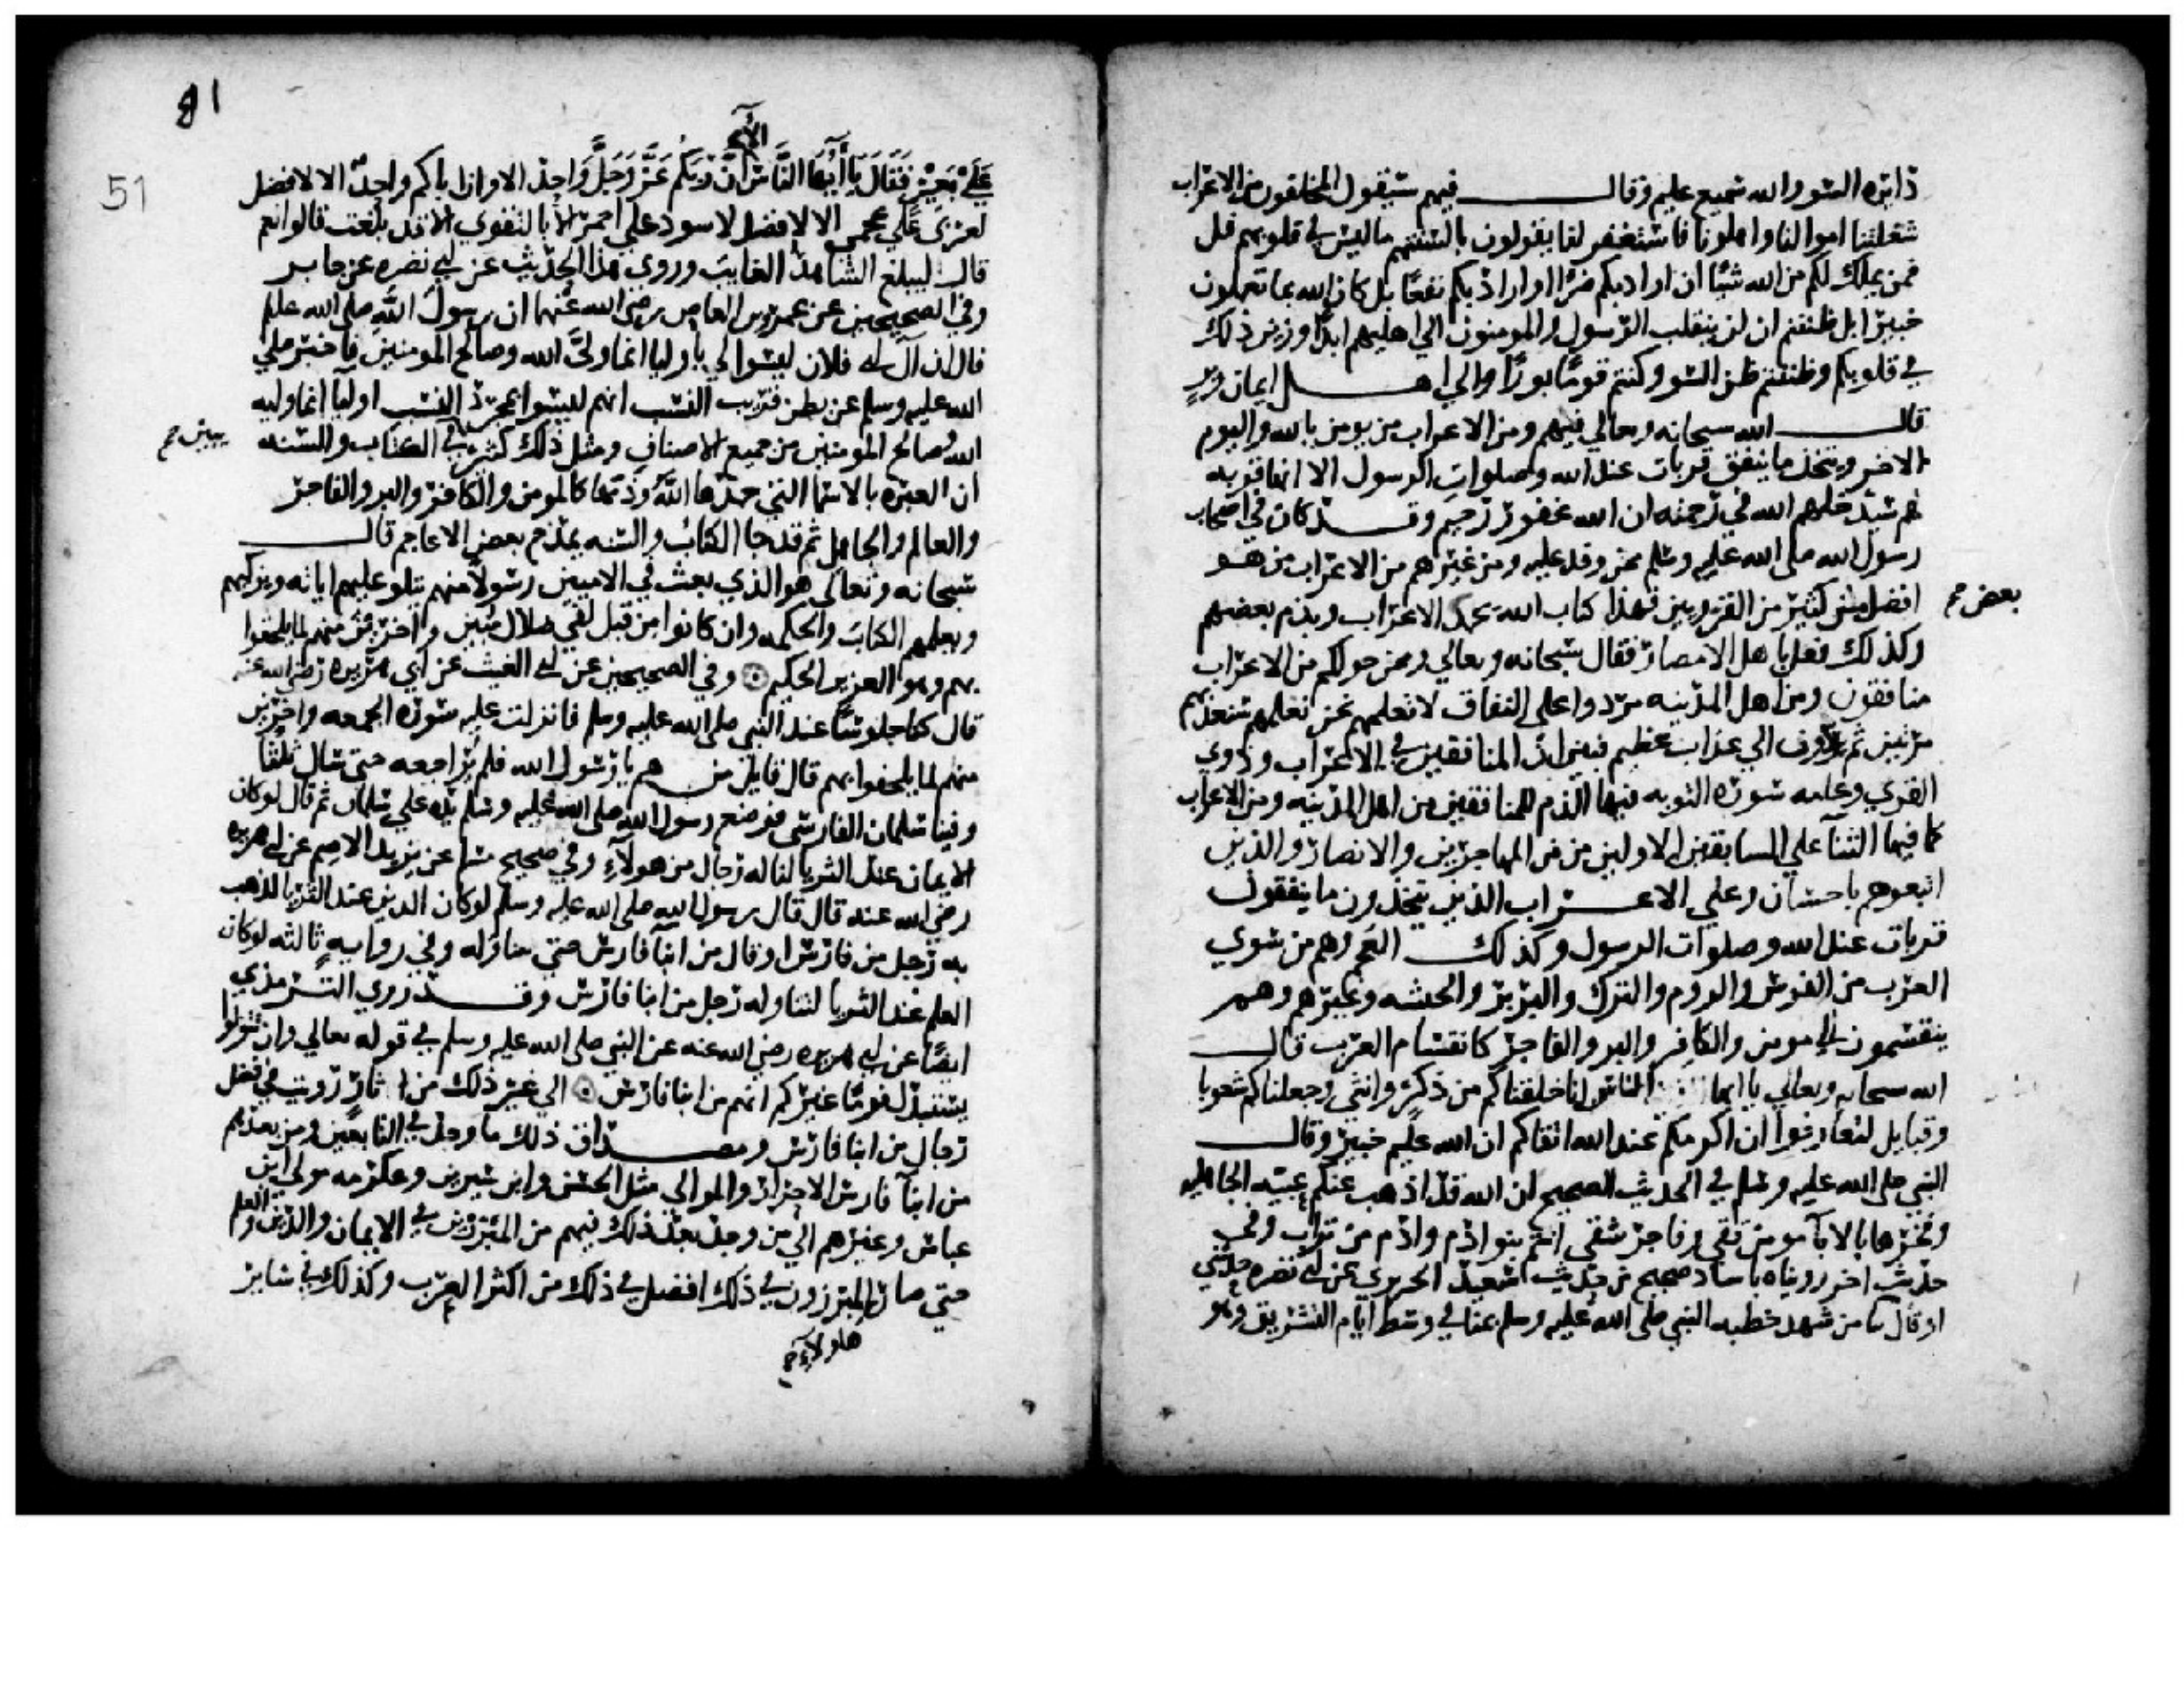 دايره السو والله سميع عليم وقال فيهم سيقول المخلفون من الاعراب
شغلتنا اموالنا واهلونا فاستغفر لنا يقولون بالسنتهم ما ليس في قلوبهم قل
فمن يملك لكم من الله شيا ان اراد بكم ضرا او اراد بكم نفعا بل كان الله بما تعملون
خبيرا بل ظننتم ان لن ينقلب الرسول والمومنون الي اهليهم ابدا وزين ذلك
في قلوبكم وظننتم ظن السو وكنتم قوما بورا والي اهل ايمان وبر
قال الله سبحانه وتعالي فيهم ومن الاعراب من يومن بالله واليوم
الاخر ويتخذ ما ينفق قربات عند الله وصلوات الرسول الا انها قربه
لهم سيدخلهم الله في رحمته ان الله غفور رحيم وقد كان في اصحاب
رسول الله صلي الله عليه وسلم ممن وفد عليه ومن غيرهم من الاعراب من هو
افضل من كثير من القرويين فهذا كتاب الله يحمد الاعراب ويذم بعضهم
بعض صح
وكذلك فعل باهل الامصار فقال سبحانه وتعالي وممن حولكم من الاعراب
منافقون ومن اهل المدينه مردوا علي النفاق لا تعلمهم نحن نعلمهم سنعذبهم
مرتين ثم يردون الي عذاب عظيم فبين ان المنافقين في الاعراب وذوي
القري وعامه سوره التوبه فيها الذم للمنافقين من اهل المدينه ومن الاعراب
كما فيها الثنا علي السابقين الاولين من المهاجرين والانصار والذين
اتبعوهم باحسان وعلي الاعراب الذين يتخذون ما ينفقون
قربات عند الله وصلوات الرسول وكذلك العجم وهم من سوي
العرب من الفرس والروم والترك والبربر والحبشه وغيرهم وهم
ينقسمون الي مومن والكافر والبر والفاجر كانقسام العرب قال
الله سبحانه وتعالي يا ايها الناس انا خلقناكم من ذكر وانثي وجعلناكم شعوبا
وقبايل لتعارفوا ان اكرمكم عند الله اتقاكم ان الله عليم خبير وقال
النبي صلي الله عليه وسلم في الحديث الصحيح ان الله قد اذهب عنكم عبيه الجاهليه
وفخرها بالابا مومن تقي وفاجر شقي انتم بنو ادم وادم من تراب وفي
حديث اخر رويناه باسناد صحيح من حديث سعيد الجريري عن ابي نضره حدثني
او قال نا من شهد خطبه النبي صلي الله عليه وسلم بمنا في وسط ايام التشريق وهو
81
51
علي بعير فقال يا ايها الناس الا ان ربكم عز وجل واحد الا وان اباكم واحد الا لا فضل
لعربي علي عجمي الا لا فضل لاسود علي احمر الا بالتقوي الا قد بلغت قالوا نعم
قال ليبلغ الشاهد الغايب وروي هذا الحديث عن ابي نضره عن جابر
وفي الصحيحين عن عمرو بن العاص رضي الله عنهما ان رسول الله صلي الله عليه
قال ان آل ابي فلان ليسوا لي باوليا انما وليي الله وصالح المومنين فاخبر صلي
الله عليه وسلم عن بطن قريب النسب انهم ليسوا بمجرد النسب اوليا انما وليه
الله وصالح المومنين من جميع الاصناف ومثل ذلك كثير في الكتاب والسنه
يبين صح
ان العبره بالاسما التي حمدها الله وذمها كالمومن والكافر والبر والفاجر
والعالم والجاهل ثم قد جا الكتاب والسنه بمدح بعض الاعاجم قال
سبحانه وتعالي هو الذي بعث في الاميين رسولا منهم يتلو عليهم اياته ويزكيهم
ويعلمهم الكتاب والحكمه وان كانوا من قبل لفي ضلال مبين واخرين منهم لما يلحقوا
بهم وهو العزيز الحكيم وفي الصحيحين عن ابي الغيث عن ابي هريره رضي الله عنه
قال كنا جلوسا عند النبي صلي الله عليه وسلم فانزلت عليه سوره الجمعه واخرين
منهم لما يلحقوا بهم قال قايل من هم يا رسول الله فلم يراجعه حتي سال ثلثا
وفينا سلمان الفارسي فوضع رسول الله صلي الله عليه وسلم يده علي سلمان ثم قال لو كان
الايمان عند الثريا لناله رجال من هولاء وفي صحيح مسلم عن يزيد الاصم عن ابي هريره
رضي الله عنه قال قال رسول الله صلي الله عليه وسلم لو كان الدين عند الثريا لذهب
به رجل من فارس او قال من ابنا فارس حتي يتناوله وفي روايه ثالثه لو كان
العلم عند الثريا لتناوله رجل من ابنا فارس وقد روي الترمذي
ايضا عن ابي هريره رضي الله عنه عن النبي صلي الله عليه وسلم في قوله تعالي وان تتولوا
يستبدل قوما غيركم انهم من ابنا فارس الي غير ذلك من اثار رويت في فضل
رجال من ابنا فارس ومصداق ذلك ما وجد في التابعين ومن بعدهم
من ابنا فارس الاحرار والموالي مثل الحسن وابن سيرين وعكرمه مولي ابن
عباس وغيرهم الي من وجد بعد ذلك فيهم من المبرزين في الايمان والدين والعلم
حتي صار المبرزون في ذلك افضل في ذلك من اكثر العرب وكذلك في ساير
هاولاء صح